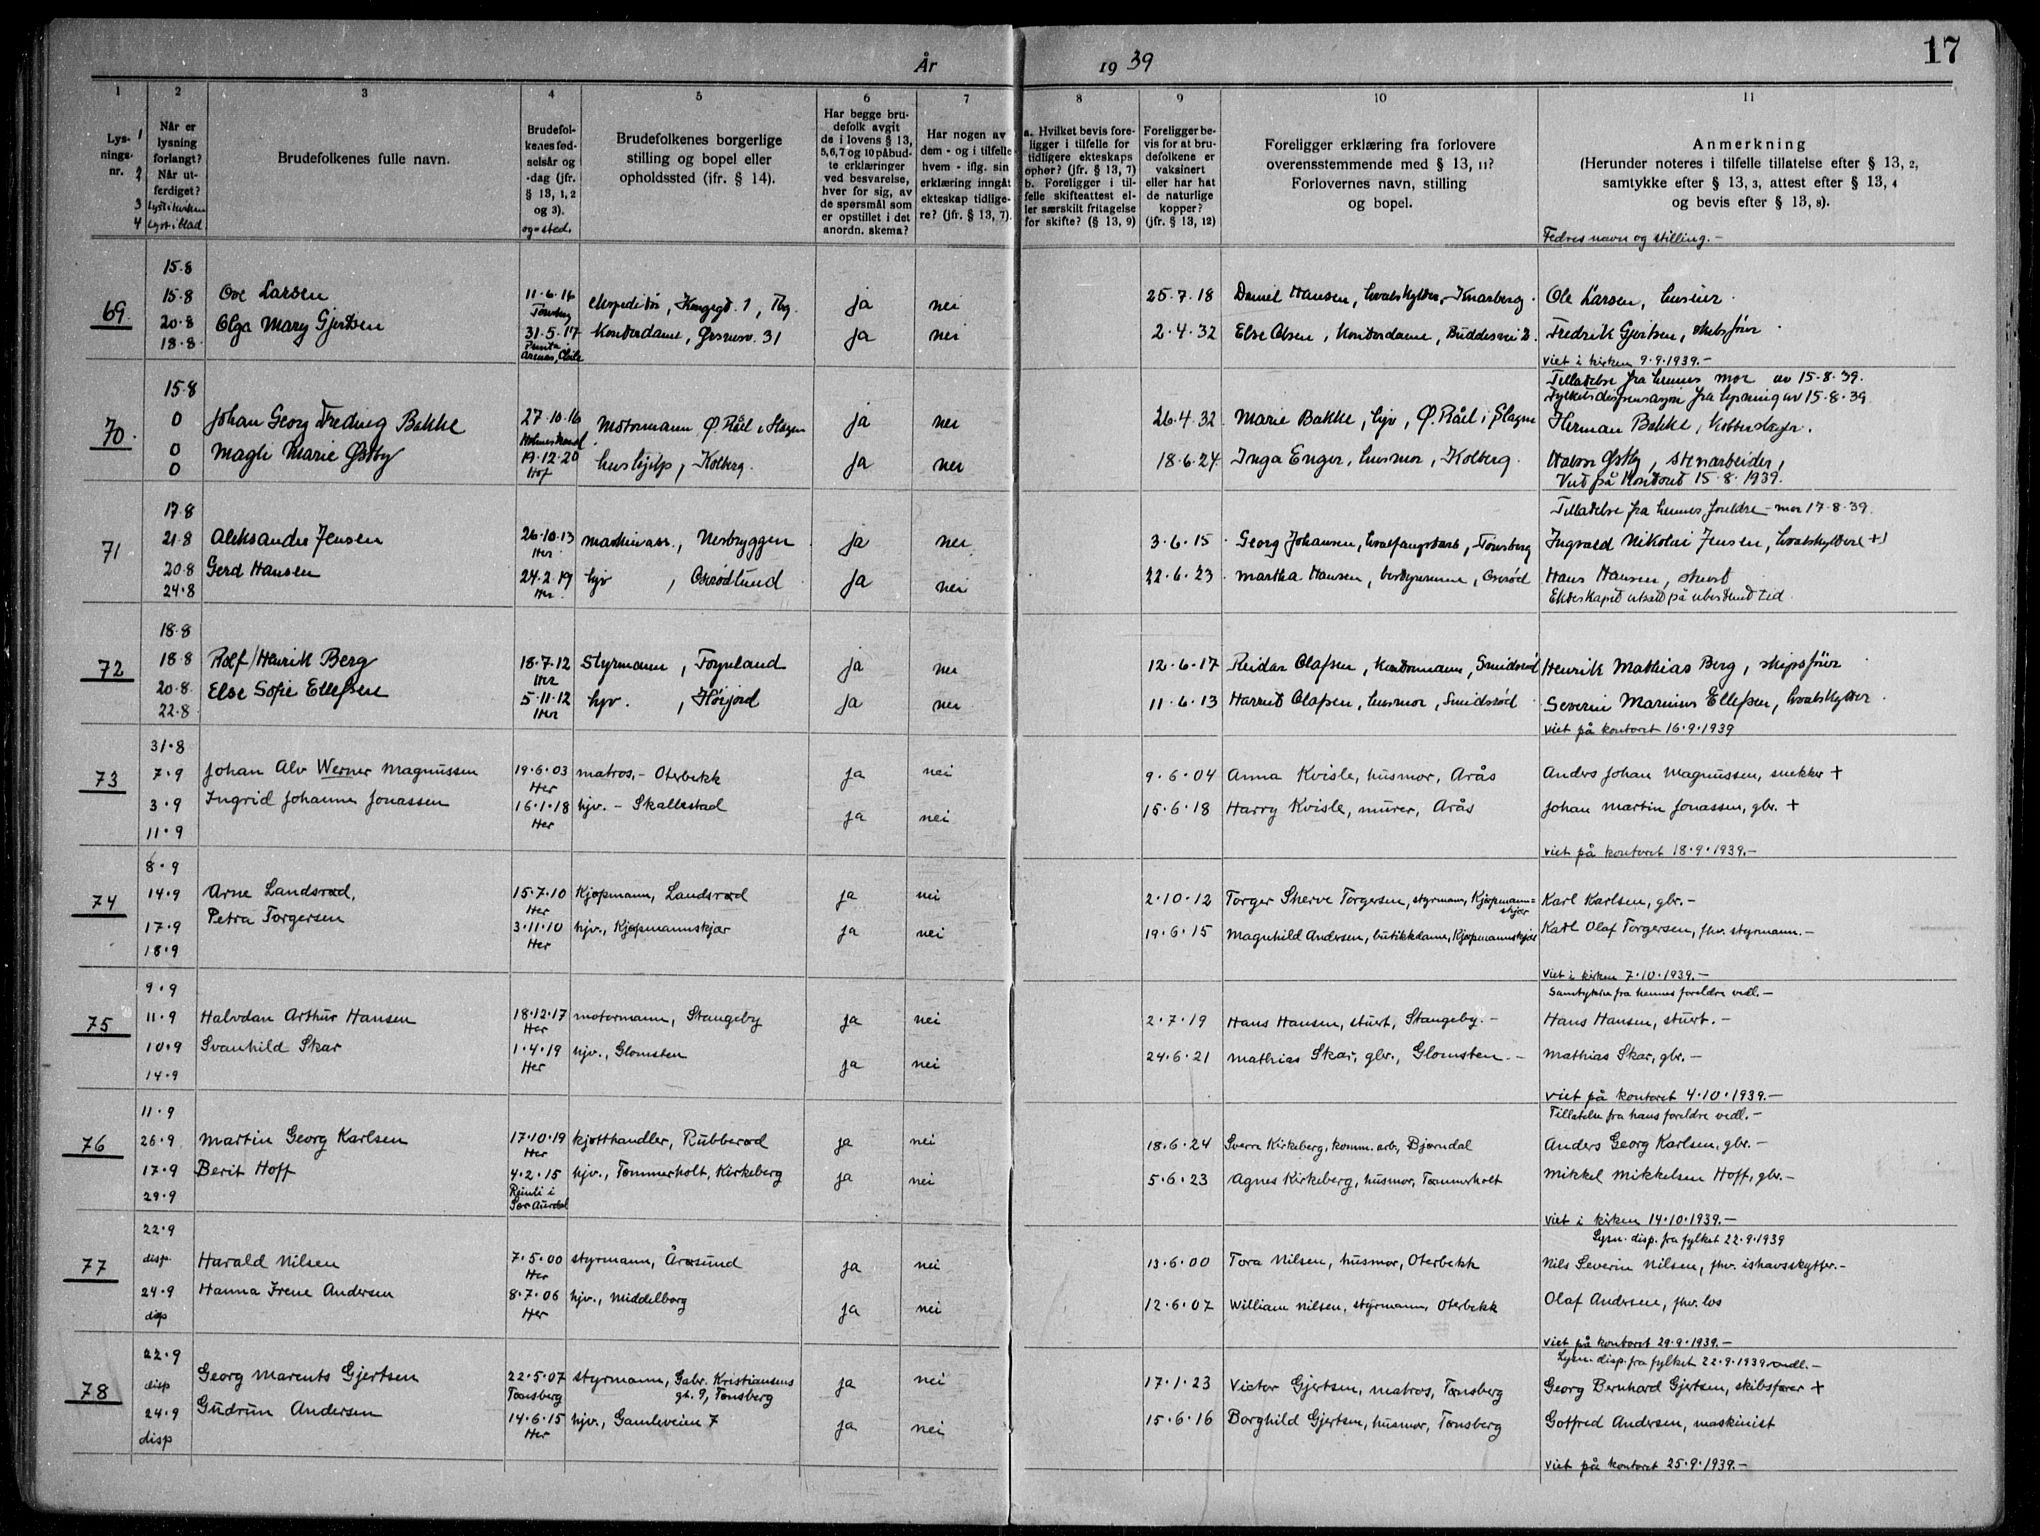 17
År 1939
1 2 3 4 5 6 7 8 9 10 11
Lysnings-nr. 1 2 3 4
Når er lysning forlangt? Når utferdiget? Lyst i kirken Lyst i blad
Brudefolkenes fulle navn.
Brudefolkenes fødselsår og -dag (jfr. § 13, 1, 2 og 3). og -sted.
Brudefolkenes borgerlige stilling og bopel eller opholdssted (jfr. § 14).
Har begge brudefolk avgit de i lovens § 13, 5, 6, 7 og 10 påbudte erklæringer ved besvarelse, hver for sig, av de spørsmål som er opstillet i det anordn. skema?
Har nogen av dem - og i tilfelle hvem - iflg. sin erklæring inngåt ekteskap tidligere? (jfr. § 13, 7).
a. Hvilket bevis foreligger i tilfelle for tidligere ekteskaps ophør? (jfr. § 13, 7) b. Foreligger i tilfelle skifteattest eller særskilt fritagelse for skifte? (§ 13, 9)
Foreligger bevis for at brudefolkene er vaksinert eller har hat de naturlige kopper? (jfr. § 13, 12)
Foreligger erklæring fra forlovere overensstemmende med § 13, 11? Forlovernes navn, stilling og bopel.
Anmerkning (Herunder noteres i tilfelle tillatelse efter § 13, 2, samtykke efter § 13, 3, attest efter § 13, 4 og bevis efter § 13, 8).
Fedres navn og stilling.-
15.8
69 15.8 Ove Larsen 11.6.16 Tønsberg ekspeditør, Kongegt. 1, Tbg. ja nei 25.7.18 Daniel Hansen, hvalskytter, Knarberg Ole Larsen, huseier.
20.8 Olga Mary Gjertsen 31.5.17 Punta Arenas, Chile Kontordame, 31 ja nei 2.4.32 Else Olsen, Kontordame, Fredrik Gjertsen, skibsfører
18.8
viet i kirken 9.9.1939.-
15.8 Tilladelse fra hennes mor av 15.8.39.
Fylketsdispensasjon fra lysning av 15.8.39
70. 0 Johan Georg Bakke 27.10.16 Holmestrand Motormann Ø. Råel i Slagen ja nei 26.4.32 Marie Bakke, hjv, Ø. Råel i Slagen Herman Bakke, Kobberslager.
0 Magli Marie Østby 19.12.20 Hof hushjelp, Kolberg. ja nei 18.6.24 Inga Enger, husmor, Kolberg. Østby, stenarbeider,
0 Viet på Kontoret 15.8.1939.
17.8 Tilladelse fra hennes foreldre - mor 17.8.39.
71 21.8 Aleksander Jensen 26.10.13 Her. maskinass., Nesbryggen ja nei 3.6.15 Georg Johansen, hvalfangstarb., Tønsberg Ingvald Nikolai Jensen, hvalskytter +
20.8 Gerd Hansen 24.2.19 Her. hjv, Oserødlund ja nei 22.6.23 Martha Hansen, bestyrerinne, Oserød Hans Hansen, stuert
24.8 Ekteskapet utsatt på ubestemt tid.
18.8
72 18.8 Rolf Henrik Berg 18.7.12 Her Styrmann, Føynland ja nei 12.6.17 Reidar Olafsen, Kontormann, Smidsrød Henrik Mathias Berg, skipsfører
20.8 Else Sofie Ellefsen 5.11.12 Her hjv., Høijord ja nei 11.6.13 Harriet Olafsen, husmor, Smidsrød Severin Marinius Ellefsen, hvalskytter
22.8 viet på kontoret 16.9.1939
31.8
73 7.9 Johan Alv Werner Magnussen 19.6.03 Her matros, - Oterbekk ja nei 9.6.04 Anna Kvisle, husmor, Arås Anders Johan Magnussen, snekker +
3.9 Ingrid Johanne Jonassen 16.1.18 Her hjv. - Skallestad ja nei 15.6.18 Harry Kvisle, murer, Arås Johan Martin Jonassen, gbr. +
11.9
viet på kontoret 18.9.1939.-
8.9
74 14.9 Arne Landsrød, 15.7.10 Her Kjøpmann, Landsrød ja nei 2.10.12 Torger Sherve Torgersen, styrmann, Kjøpmannskjær Karl Karlsen, gbr.-
17.9 Petra Torgersen 3.11.10 Her hjv., Kjøpmannskjær ja nei 19.6.15 Magnhild Andersen, butikkdame, Kjøpmannskjær Karl Olaf Torgersen, fhv. styrmann.-
18.9
viet i kirken 7.10.1939.-
9.9 Samtykke fra hennes foreldre vedl.-
75 11.9 Halvdan Arthur Hansen 18.12.17 Her motormann, Stangeby ja nei 2.7.19 Hans Hansen, stuert, Stangeby.- Hans Hansen, stuert.-
10.9 Svanhild Skar 1.4.19 Her hjv., Glomsten ja nei 24.6.21 Mathias Skar, gbr., Glomsten.- Mathias Skar, gbr.-
14.9
viet på kontoret 4.10.1939.-
11.9 Tillatelse fra hans foreldre vedl.-
76 26.9 Martin Georg Karlsen 17.10.19 Her kjøtthandler, Rubberød ja nei 18.6.24 Sverre Kirkeberg, komm. arb., Bjørndal Anders Georg Karlsen, gbr.-
17.9 Berit Hoff 4.2.15 Reinli i Sør Aurdal hjv., Tømmerholt, Kirkeberg ja nei 5.6.23 Agnes Kirkeberg, husmor, Tømmerholt Mikkel Mikkelsen Hoff, gbr.-
29.9
viet i kirken 14.10.1939.-
22.9 Lysn. disp. fra fylket 22.9.1939
77 disp Harald Nilsen 7.5.00 Her styrmann, Årøsund ja nei 13.6.00 Tora Nilsen, husmor, Oterbekk Nils Severin Nilsen, fhv. ishavsskytter.-
24.9 Hanna Irene Andersen 8.7.06 Her hjv., Middelborg ja nei 12.6.07 William Nilsen, styrmann, Oterbekk Olaf Andersen, fhv. los
disp
viet på kontoret 29.9.1939.-
22.9 Lysn. disp. fra fylket 22.9.1939 vedl.-
78 disp Georg Marents Gjertsen 22.5.07 Tønsberg styrmann, Gabr. Kristiansens gt. 9, Tønsberg ja nei 17.1.23 Victor Gjertsen, matros, Tønsberg Georg Bernhard Gjertsen, skibsfører +
24.9 Gudrun Andersen 14.6.15 Her hjv., Gamleveien 7 ja nei 15.6.16 Borghild Gjertsen, husmor, Tønsberg Gotfred Andersen, maskinist
disp
viet på kontoret 25.9.1939.-